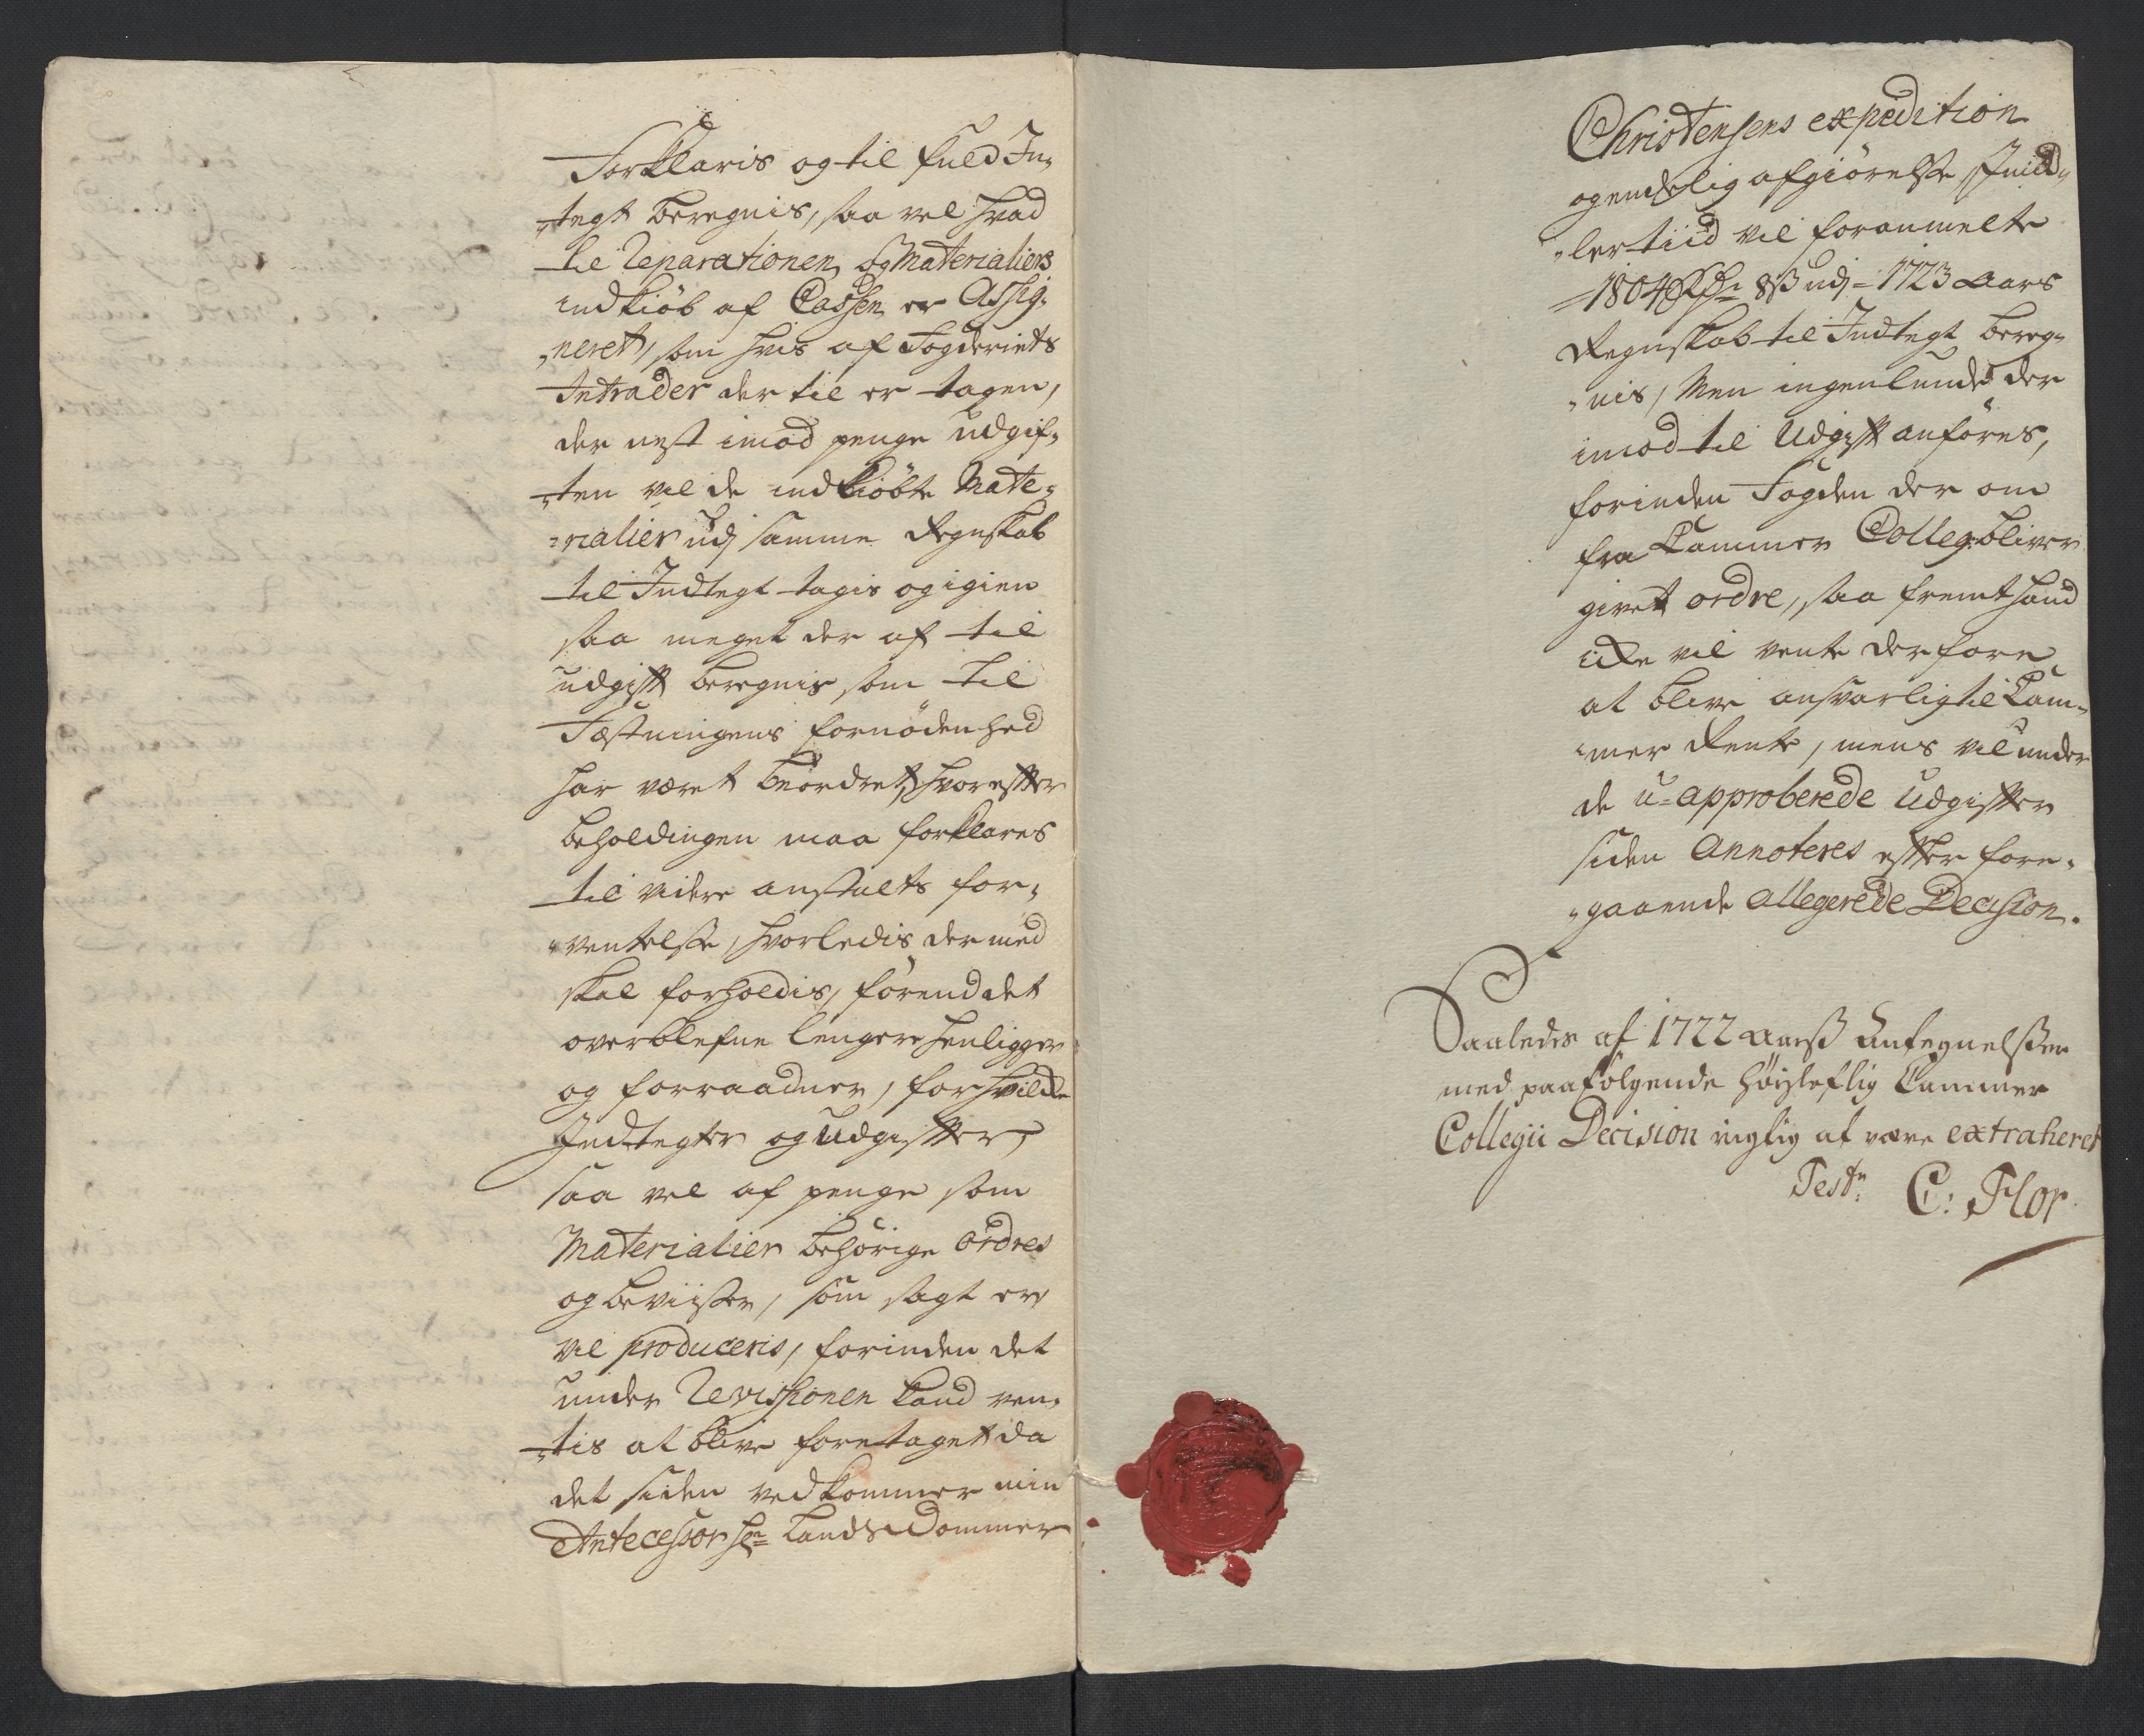 Forklaris og til fuld In-
-tegt beregnis, saa vel hvad
til Reparationen og Materialiers
indkiøb af Cassen er Assig-
-neret, som hvis af Fogderiets
Intrader der til er tagen,
der nest imod penge udgif-
-ten vil de indkiøbte Mate-
-rialier udj samme Regnskab
til Indtegt tagis og igien
saa meget der af til
udgift beregnis som til
Fæstningens fornödenhed
har været beordret, hvorefter
beholdingen maa forklares
til videre anstalts for-
-ventelsse, hvorledis der med
skal forholdis, förend det
overblefne lengere henligger
og forraadner, for hvilcke
Indtegter og Udgifter,
saa vel af penge som
Materialier behörige ordres
og beviisser, som sagt er,
vil produceris, forinden det
under Revissionen kand ven-
-tis at blive foretaget da
det siden vedkommer min
Antecessor Hr. Lands Dommer
Christensens expedition
og endelig afgiörelsse, Imid-
-lertiid vil foranmelte
1804 Rdr. 8 ß udj 1723 Aars
Regnskab til Indtegt bereg-
-nis, Men ingenlunde der
imod til Udgift anföres,
forinden Fogden der om
fra Cammer Colleg: bliver
givet ordre, saa fremt hand
icke vil vente derfore
at blive ansvarlig til Cam-
-mer Rente, mens vil under
de u-approberede Udgifter
siden Annoteres efter fore-
-gaaende allegerede Decision.
Saaledes af 1722 Aarß Antegnelsser
med paafölgende höyloflig Cammer
Collegii Decision rigtig at være extraheret
Test: C: Flor